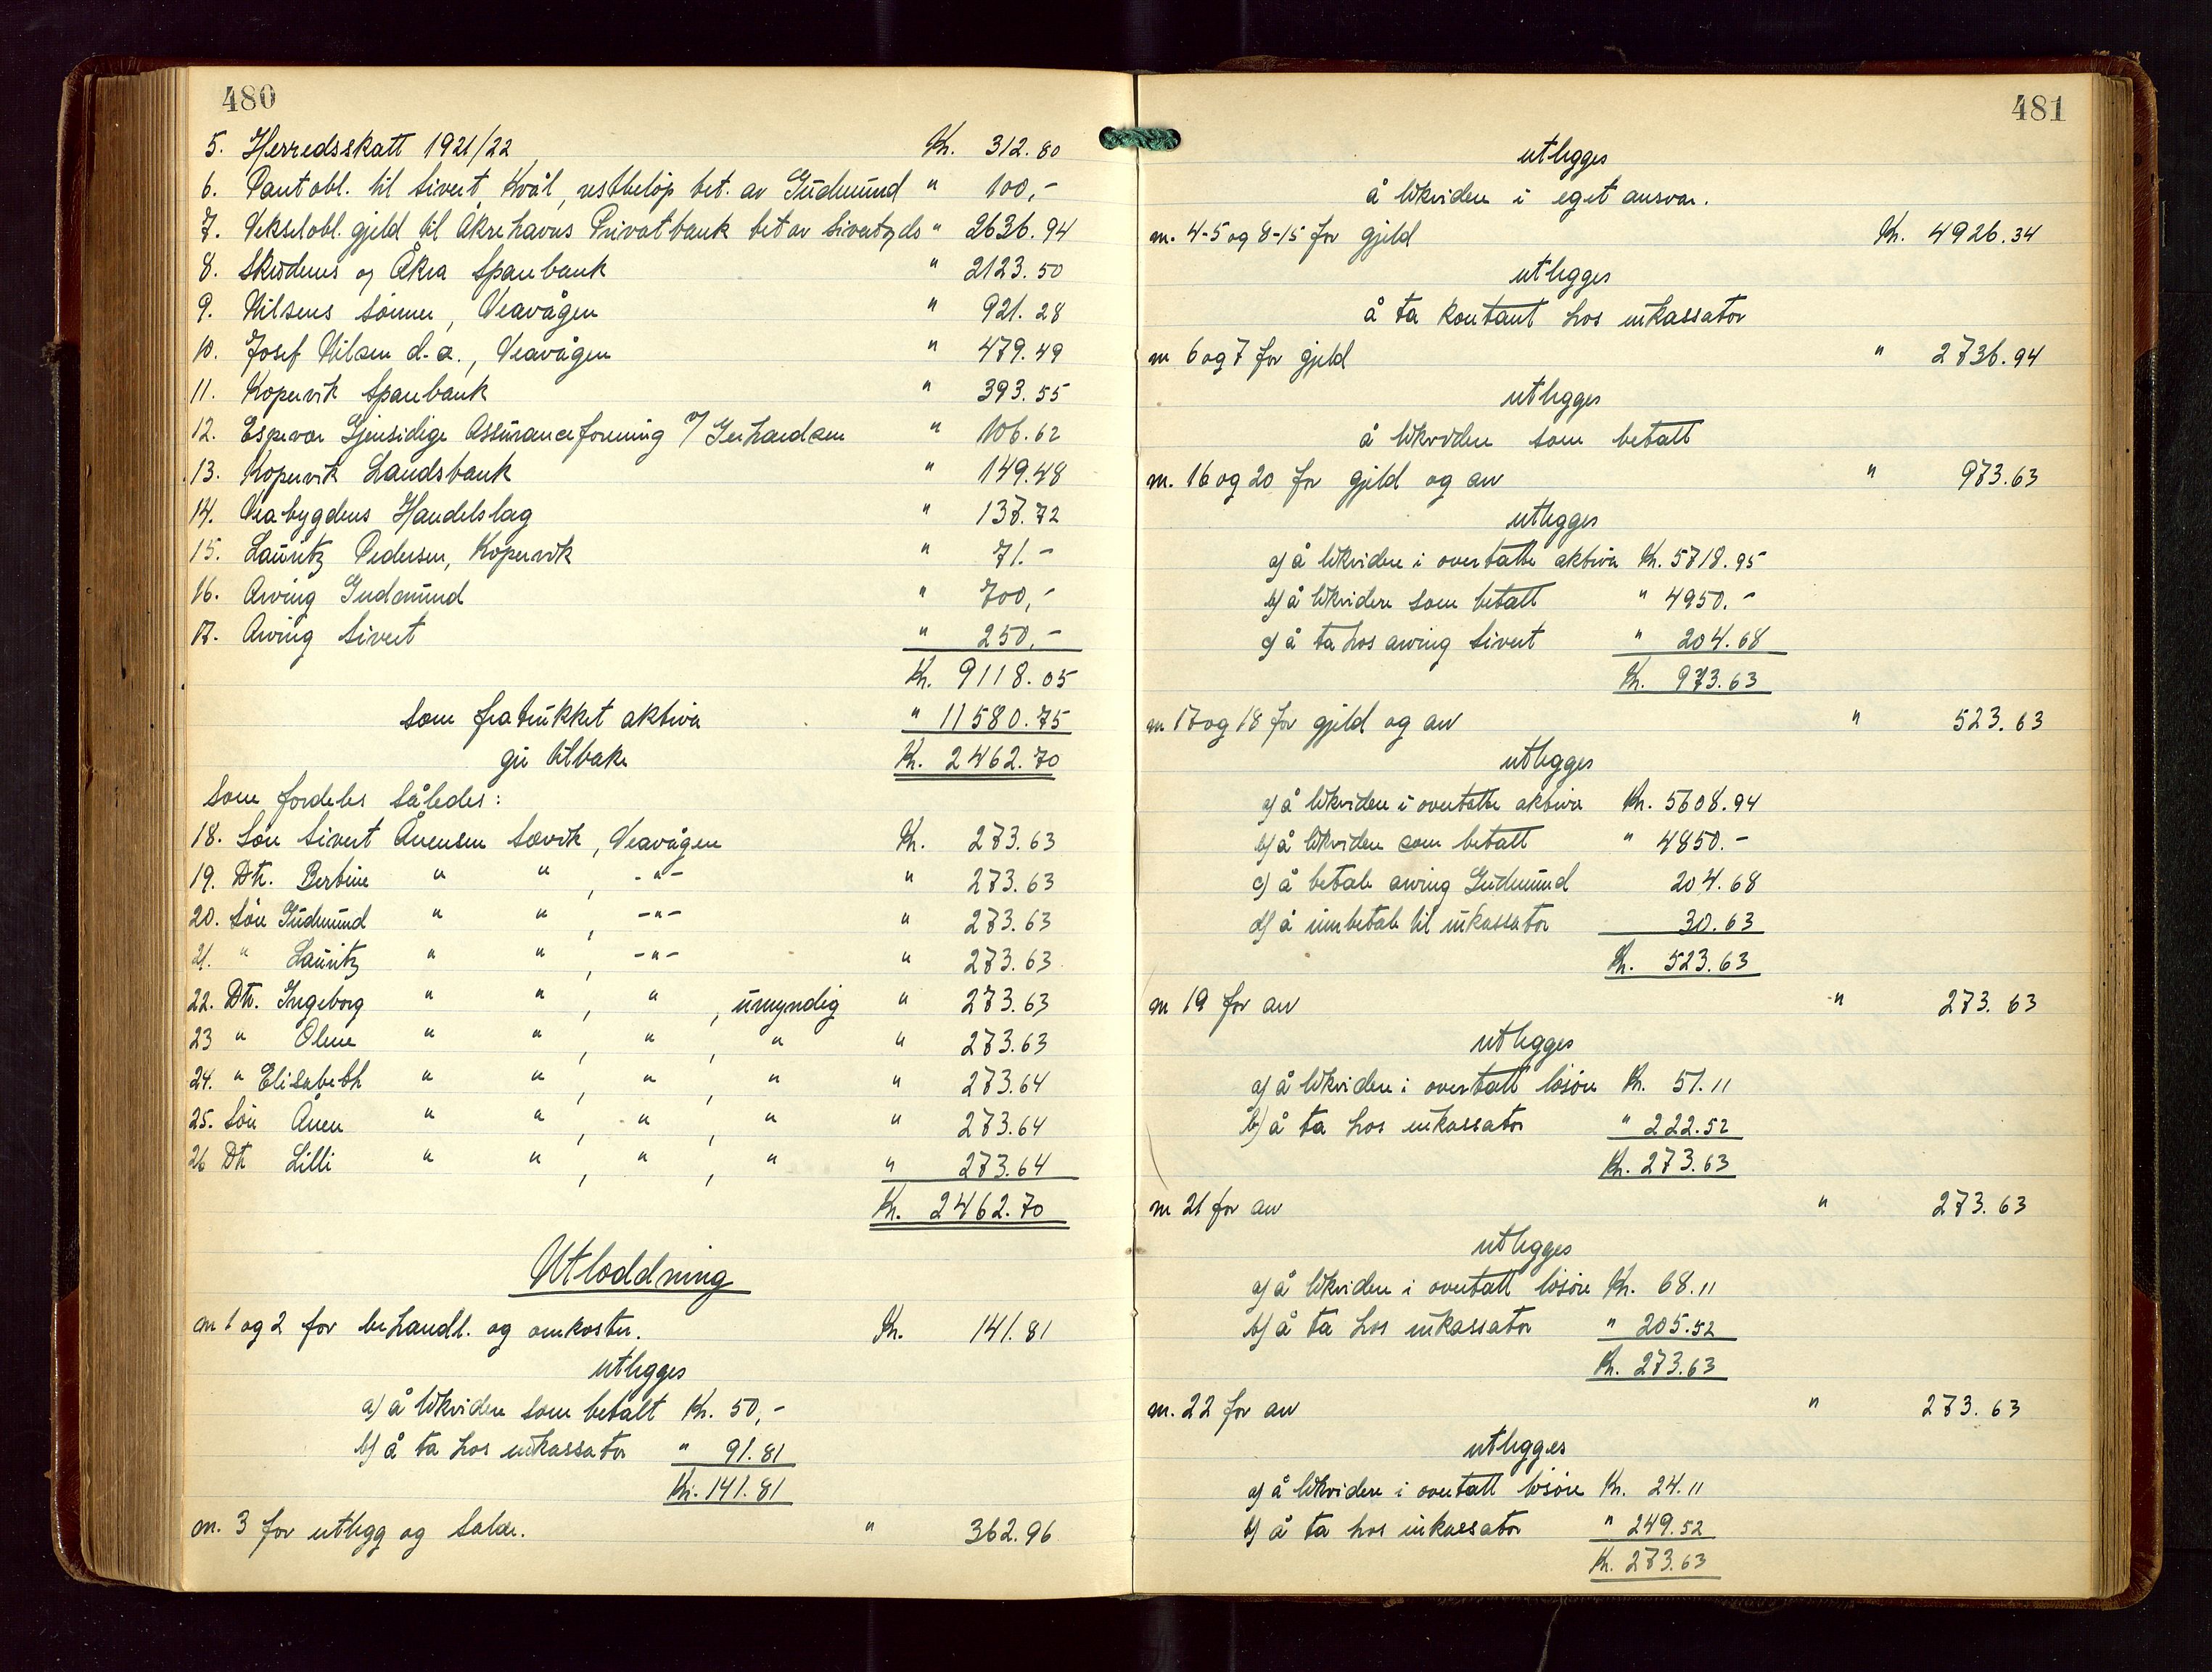 480
5. Herredsskatt 1921/22 Kr. 312.80
6. Pantobl. til Sivert Kvål, restbeløp bet. av Gudmund " 100,-
7. Vekselobl. gjeld til Åkrehavns Privatbank bet av Sivert og ds " 2636.94
8. Skudenes og Åkra Sparebank " 2123.50
9. Nilsens Sønner, Veavågen " 921.28
10. Josef Nilsen d.æ., Veavågen " 479.49
11. Kopervik Sparebank " 393.55
12. Espevær Gjensidige Assuranceforening v/ Gerhardsen " 106.62
13. Kopervik Landsbank " 149.48
14. Veabygdens Handelslag " 137.72
15. Lauritz Pedersen, Kopervik " 71.-
16. Arving Gudmund " 700,-
17. Arving Sivert " 250,-
Kr. 9118.05
som fratrukket aktiva " 11580.75
gir tilbake Kr. 2462.70
Som fordeles således:
18. Søn Sivert Ånensen Sævik, Veavågen Kr. 273.63
19. Dtr. Bertine " " , -"- " 273.63
20. Søn Gudmund " " , -"- " 273.63
21. " Lauritz " " , -"- " 273.63
22. Dtr. Ingeborg " " , " , umyndig " 273.63
23 " Oline " " , " , " " 273.63
24. " Elisabeth " " , " , " " 273.64
25. Søn Ånen " " , " , " " 273.64
26 Dtr Lilli " " , " , " " 273.64
Kr. 2462.70
Utloddning
nr 1 og 2 for behandl. og omkostn. Kr. 141.81
utlegges
a) å likvidere som betalt Kr. 50,-
b) å ta hos inkassator " 91.81
Kr. 141.81
nr. 3 for utlegg og Salær. " 362.96
481
utlegges
å likvidere i eget ansvar.
nr. 4-5 og 8-15 for gjeld Kr. 4926.34
utlegges
å ta kontant hos inkassator
nr 6 og 7 for gjeld " 2736.94
utlegges
å likvidere som betalt
nr. 16 og 20 for gjeld og arv " 973.63
utlegges
a) å likvidere i overtatte aktiva Kr. 5718.95
b) å likvidere som betalt " 4950.-
c) å ta hos arving Sivert " 204.68
Kr. 973.63
nr 17 og 18 for gjeld og arv " 523.63
utlegges
a) å likvidere i overtatte aktiva Kr. 5608.94
b) å likvidere som betalt " 4850.-
c) å betale arving Gudmund 204.68
d) å innbetale til inkassator 30.63
Kr. 523.63
nr 19 for arv " 273.63
utlegges
a) å likvidere i overtatt løsøre Kr. 51.11
b) å ta hos inkassator " 222.52
Kr. 273.63
nr 21 for arv " 273.63
utlegges
a) å likvidere i overtatt løsøre Kr. 68.11
b) å ta hos inkassator " 205.52
Kr. 273.63
nr. 22 for arv " 273.63
utlegges
a) å likvidere i overtatt løsøre Kr. 24.11
b) å ta hos inkassator " 249.52
Kr. 273.63